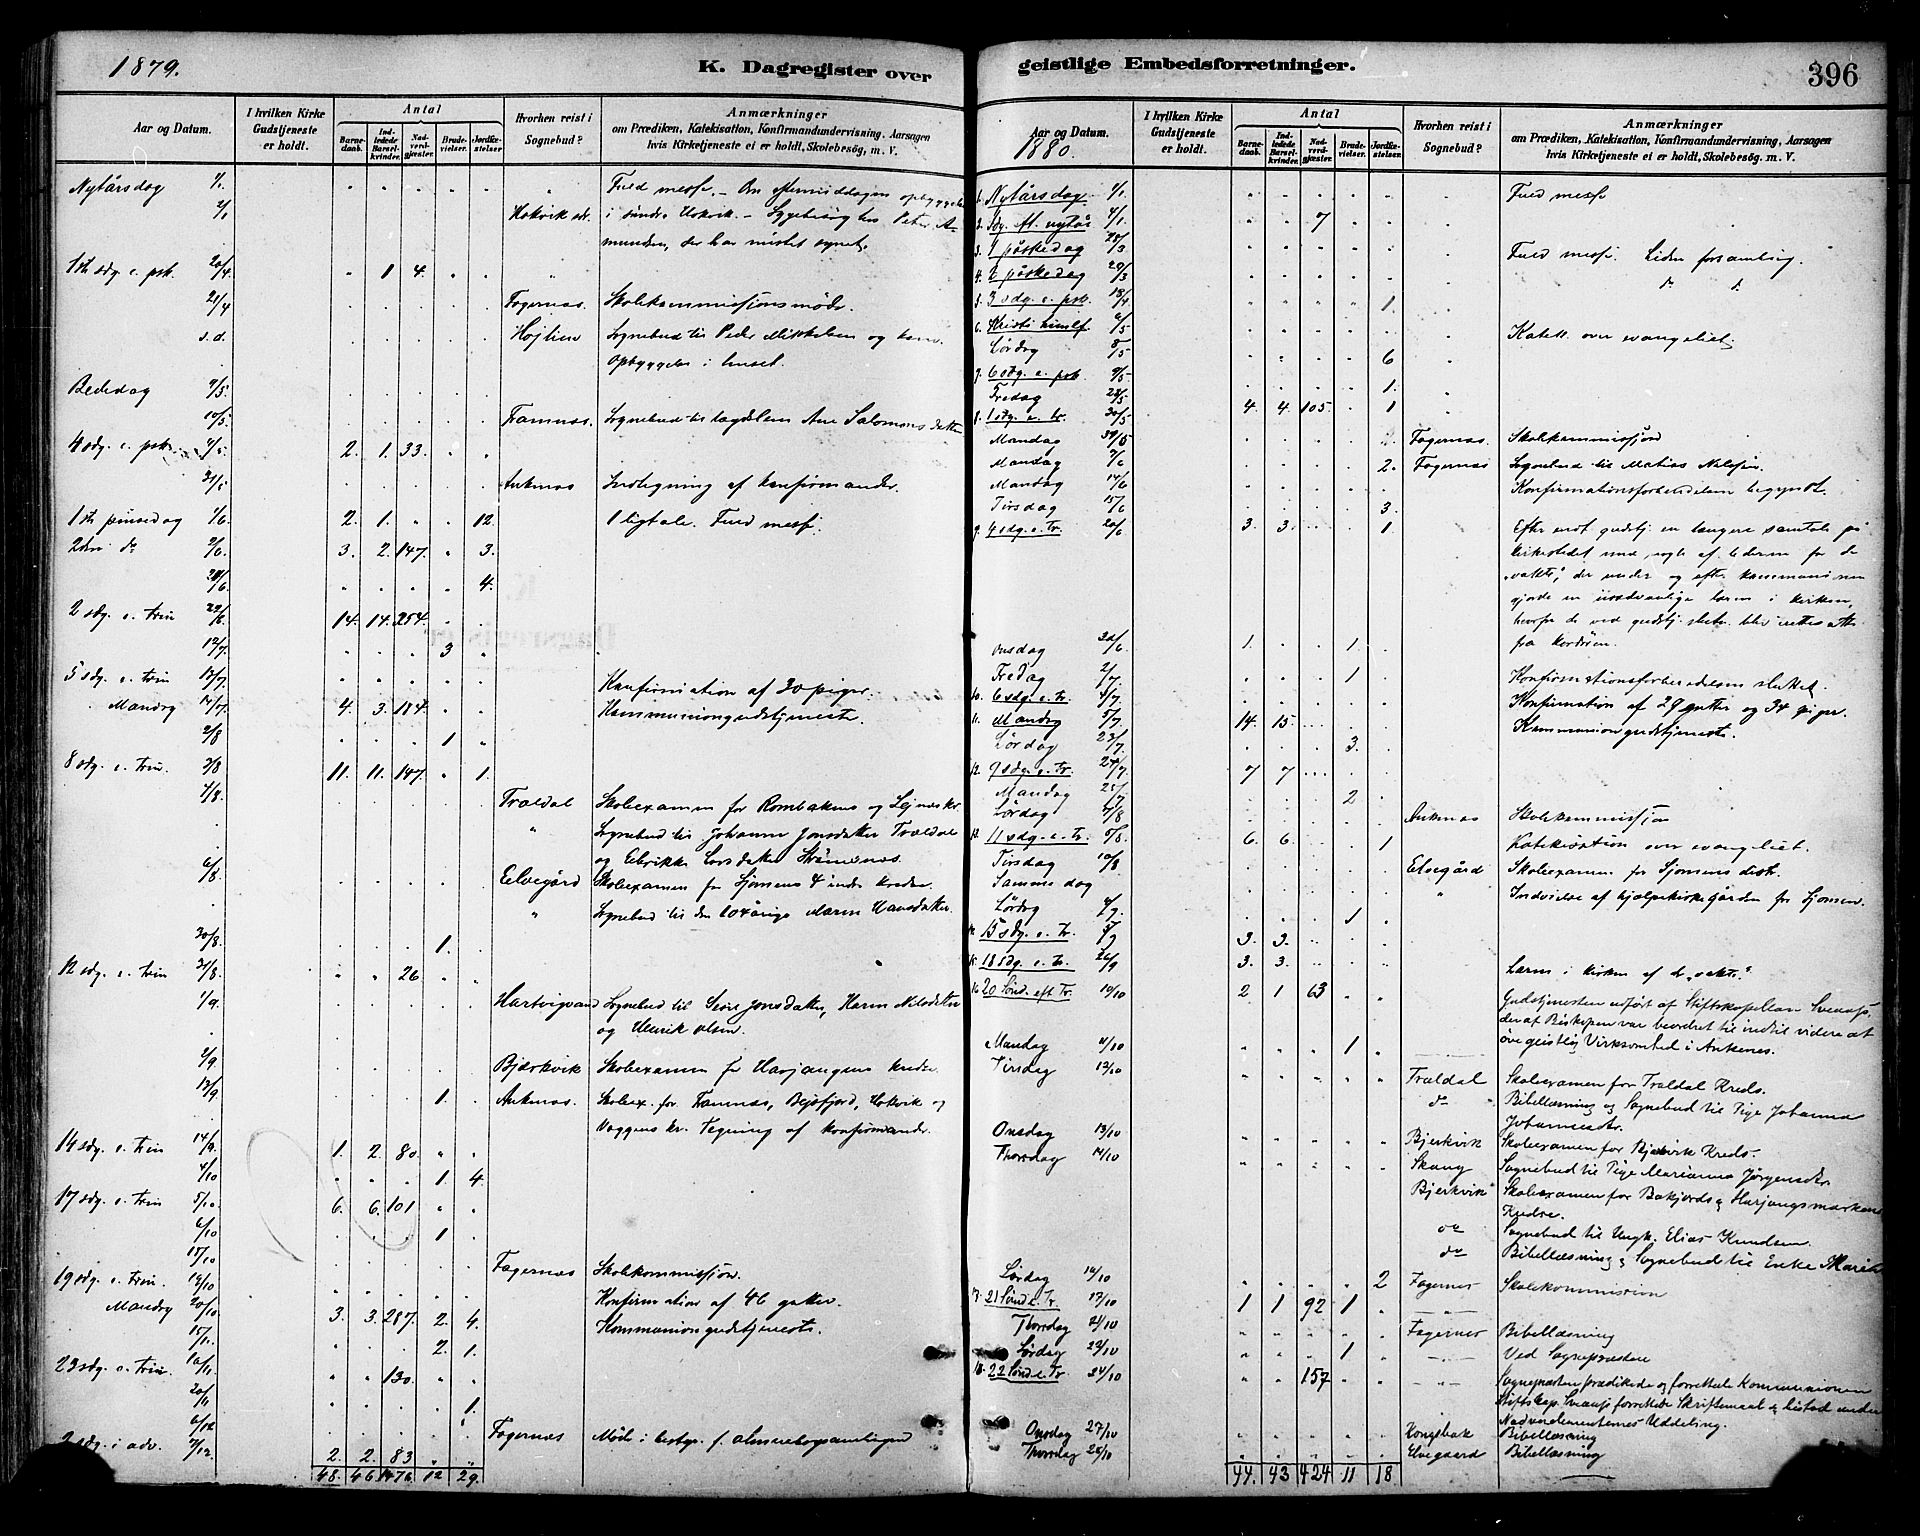 1879.
K. Dagregister over
Aar og Datum.
I hvilken Kirke Gudstjeneste er holdt.
Antal
Barnedaab.
Indledede Barselkvinder.
Nadverdgjæster.
Brudevielser.
Jordfæstelser
Hvorhen reist i Sognebud?
Anmærkninger
om Prædiken, Katekisation, Konfirmandundervisning, Aarsagen
hvis Kirketjeneste ei er holdt, Skolebesøg, m. V.
Nytårsdag 1/1 Fuld messe. - Om eftermiddagen opbyggelse
2/1 i søndre Hokvik. - Sygebesøg hos Peter A-
mundsen, der har mistet synet.
1ste sdg. e. psk. 20/4 1 4.
21/4 Fagernæs. Skolekommissionsmøde.
s.d. Højlien Sognebud til Peder Mikkelsen og
Opbyggelse i huset.
Bededag 9/5.
10/5. Framnæs. Sognebud til Ane Salomonsdatter
4 sdg. e. psk. 2. 1. 33.
Ankenæs Indtegning af konfirmander.
1ste pinsedag 1/6 2. 1. 12. 1 ligtale. Fuld messe.
2den do 2/6. 3. 2. 147. 3.
4.
2 sdg. e. trin 22/6. 14. 14. 254.
12/7. 3
5 sdg. e. trin 13/7. Konfirmation af 30 piger.
Mandag 14/7. 4. 3. 184. Kommuniongudstjeneste.
2/8 1
8 sdg. e. trin. 3/8 11. 11. 147. 1.
4/8. Traldal Skoleexamen for Rombakens og Lejnæs kr.
" Sognebud til Johanna Jonsdatter Traldal
og Elrikke Larsdatter Strømsnæs.
6/8. Elvegård Skoleexamen for Sjomens 4 indre kredse.
" Sognebud til den 104årige Maren Hansdatter.
30/8. 1.
12 sdg. e. trin 31/8. 26
1/9. Hartvigvand Sognebud til Jonsdatter, Karen Nilsdatter
og Henrik Olsen.
2/9 Bjerkvik Skoleexamen for Harjangens kredse.
13/9 1. Ankenæs. Skoleex. for Framnæs, Bejsfjord, Hokvik og
Vaggens kr. Tegning af konfirmander.
14 sdg. e. trin 14/9. 1. 2. 80.
4/10 1. 4.
17 sdg. e. trin 5/10. 6. 6. 101
6/10 1
15/10 Fagernæs Skolekommission.
19 sdg. e. trin. Konfirmation af 46 gutter.
Mandag 20/10 3. 3. 287. 2. 4. Kommuniongudstjeneste.
2. 1.
23 sdg. e. trin. 130.
1.
6/12 Fagernæs Møde i bestyr. f. almuebogsamlingen
2 sdg. i adv. 7/12. 2. 2. 83
48. 46 1476 12 29.
geistlige Embedsforretninger.
396
Aar og Datum.
1880.
I hvilken Kirke Gudstjeneste er holdt.
Antal
Barnedaab.
Indledede Barselkvinder.
Nadverdgjæster.
Brudevielser.
Jordfæstelser.
Hvorhen reist i Sognebud?
Anmærkninger
om Prædiken, Katekisation, Konfirmandundervisning, Aarsagen
hvis Kirketjeneste ei er holdt, Skolebesøg, m. V.
1. Nytårsdag 1/1 Fuld messe
2. Sdg. ef. nytår 4/1 7
3. 1 påskedag 28/3 Fuld messe. Liden forsamling.
4. 2 påskedag do do
5. 3 sdg. e. psk. 18/4 1.
6. Kristi himlf. 6/5 Katek. over evangeliet.
Lørdag 8/5 6
7. 6 sdg. e. psk. 9/5 1.
Fredag 28/5
8. 1 sdg. e. tr. 30/5 4. 4. 105. 1
Mandag 31/5 Fagernæs. Skolekommission
Mandag 7/6 2. Fagernæs Sognebud til Matias Nilssen.
Mandag 14/6 Konfirmationsforberedelsen begyndt.
Tirsdag 15/6 3.
9. 4 sdg. e. Tr. 20/6 3. 3. 1 Efter endt gudstj. en længere samtale på
kirkestedet med nogle af lederne for de
"vakte", der under og efter kommunionen
gjorde en usædvanlig larm i kirken,
hvorfor de ved gudstj. slutn. blev irettesatte
fra kordøren.
Onsdag 30/6 1. 1.
Fredag 2/7 1 Konfirmationsforberedelsen sluttet.
10. 6 sdg. e. Tr. 4/7 Konfirmation af 29 gutter og 34 piger.
11. Mandag 5/7 14. 15. Kommuniongudstjeneste.
Lørdag 3.
12. 9 sdg. e. Tr. 7 7
Mandag 2
Lørdag 7/8 Ankenæs Skolekommission
11 sdg. e. Tr. 8/8. 6. 6. 1 Katekisation over evangeliet.
Tirsdag 10/8 Elvegård Skoleexamen for Sjomens distr.
Samme dag " Indvielse af hjælpekirkegården for Sjomen.
Lørdag 4/9 1
15 sdg. e. Tr. 5/9 3. 3.
15. 18 sdg. e. Tr. 26/9 3. 3. Larm i kirken af de "vakte."
16 20 Sønd. eft Tr. 10/10 2 1 63 Gudstjenesten udført af Stiftskapellan
der af Biskopen var beordret til indtil videre at
øve geistlig Virksomhed i Ankenes.
Mandag 11/10 1
Tirsdag 12/10 Traldal Skoleexamen for Traldal Kreds.
do Bibellæsning og Sognebud til Pige Johanna
Johannesdtr.
Onsdag 13/10 Bjerkvik Skoleexamen for Bjerkvik Kreds.
Thorsdag 14/10 Skoug Sognebud til Pige Marianna Jørgensdtr.
Bjerkvik Skoleexamen for og Harjangsmarkens
Kredse.
do Sognebud til Ungk. Elias Knudsen
do Bibellæsning og Sognebud til Enke
Lørdag 16/10 2 Fagernes Skolekommission
17. 21 Sønd e. Tr. 17/10 1 1 92 1
Thorsdag 21/10 Fagernes Bibellæsning
Lørdag 23/10 1 Ved Sognepræsten
18. 22 Sønd e. Tr. 24/10 157 Sognepræsten prædikede og forrettede Kommunionen
Stiftskap. forrettede Skriftemaal og bistod under
Nadverelementernes Uddeling.
Onsdag 27/10 Kongsbak Bibellæsning
Thorsdag 28/10 Elvegaard Bibellæsning
44. 43 424 11 18